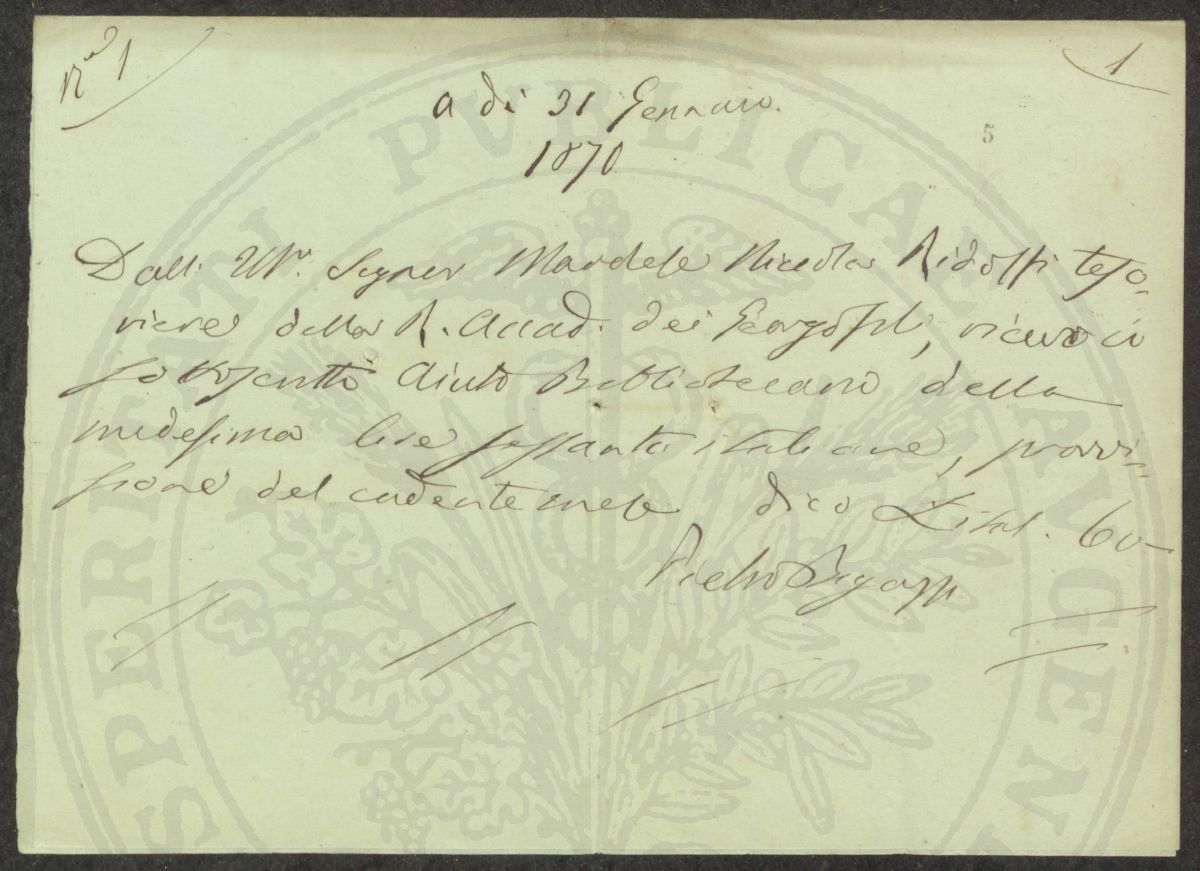 N.º 1
1
a dì 31 Gennaro.
1870
5
Dall' Ill.mo Signor Marchese Niccola Ridolfi teso-
riere della R. Accad. dei Georgofili, ricevo io
sottoscritto Aiuto Bibliotecario della
medesima lire sessanta italiane, provvi-
sione del cadente mese dico L. ital. 60—
Pietro Bigazzi
PROSPERITATI PVBLICAE AVGENDAE